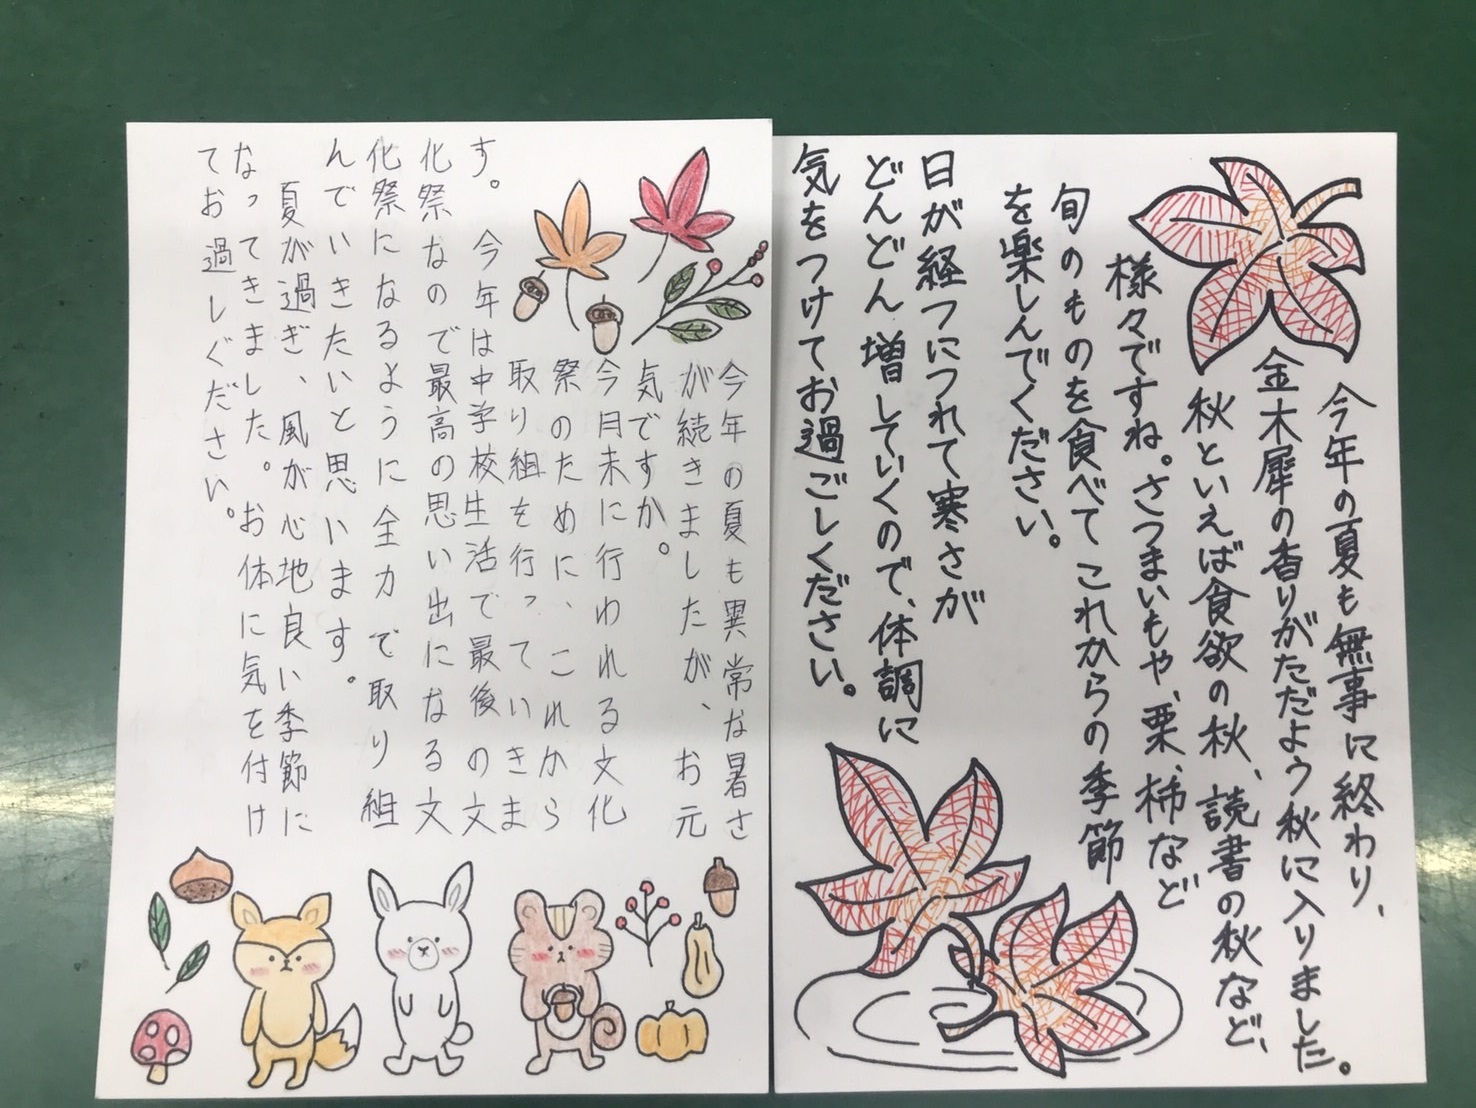 今年の夏も無事に終わり、
金木犀の香りがただよう秋に入りました。
秋といえば食欲の秋、読書の秋など、
様々ですね。さつまいもや、栗、柿など
旬のものを食べてこれからの季節
を楽しんでください。
日が経つにつれて寒さが
どんどん増していくので、体調に
気をつけてお過ごしください。
今年の夏も異常な暑さ
が続きましたが、お元
気ですか。
今月末に行われる文化
祭のために、これから
取り組を行っていきま
す。今年は中学校生活で最後の文
化祭なので最高の思い出になる文
化祭になるように全力で取り組
んでいきたいと思います。
夏が過ぎ、風が心地良い季節に
なってきました。お体に気を付け
てお過しぐださい。